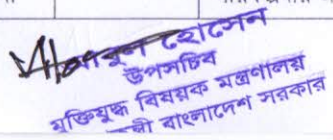 হোসেন
উপসচিব
মুক্তিযুদ্ধ বিষয়ক মন্ত্রণালয়
বাংলাদেশ সরকার